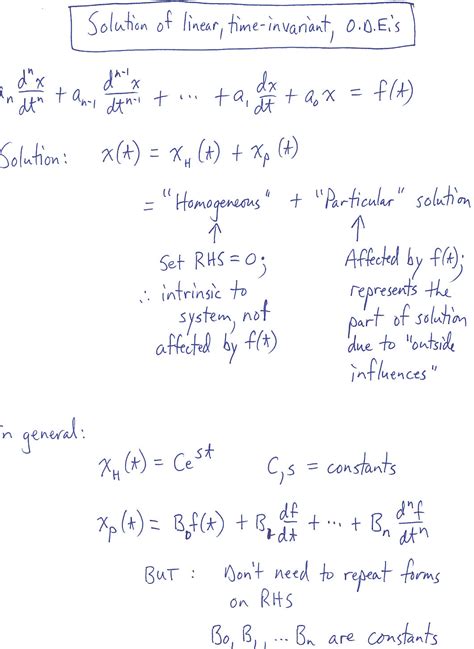 Solution of linear, time-invariant, O.D.E.'s
aₙ dⁿx/dtⁿ + aₙ₋₁ dⁿ⁻¹x/dtⁿ⁻¹ + ⋯ + a₁ dx/dt + a₀x = f(t)
Solution: x(t) = x_H(t) + x_P(t)
= "Homogeneous" + "Particular" solution
↑ ↑
Set RHS = 0;
∴ intrinsic to
system, not
affected by f(t)
Affected by f(t);
represents the
part of solution
due to "outside
influences"
In general:
x_H(t) = Ce^{st} C,s = constants
x_P(t) = B₀f(t) + B₁ df/dt + ⋯ + Bₙ dⁿf/dtⁿ
BUT : Don't need to repeat forms
on RHS
B₀, B₁, ... Bₙ are constants